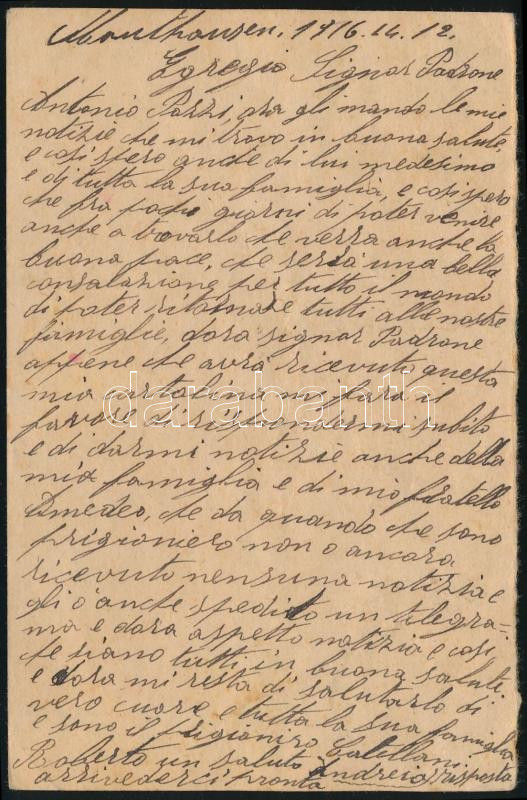 Mauthausen. 1916.14.12.
Egregio Signor Padrone
Antonio Pozzi, ora gli mando le mie
notizie che mi trovo in buona salute,
e cosi spero anche di lui medesimo
e di tutta la sua famiglia, e cosi spero
che fra pochi giorni di poter venire
anche a trovarlo che verra anche la
buona pace, che seria una bella
consalazione per tutto il mondo
di poter ritornare tutti alle nostre
famiglie, dora signor Padrone
appene che avra ricevuti questa
mia cartolina mi fara il
favore di rispondermi subito
e di darmi notizie anche della
mia famiglia e di mio fratello
Amedeo, che da quando che sono
prigioniero non o ancora
ricevuto nensuna notizia e
gli o anche spedito un telegra-
ma e dora aspetto notizia e cosi
che siano tutti in buona salute,
e dora mi resta di salutarlo di
vero cuore e tutta la sua famiglia
e sono il prigioniro
Roberto un saluto Andreia risposta
arrivederci pronta
darabanth